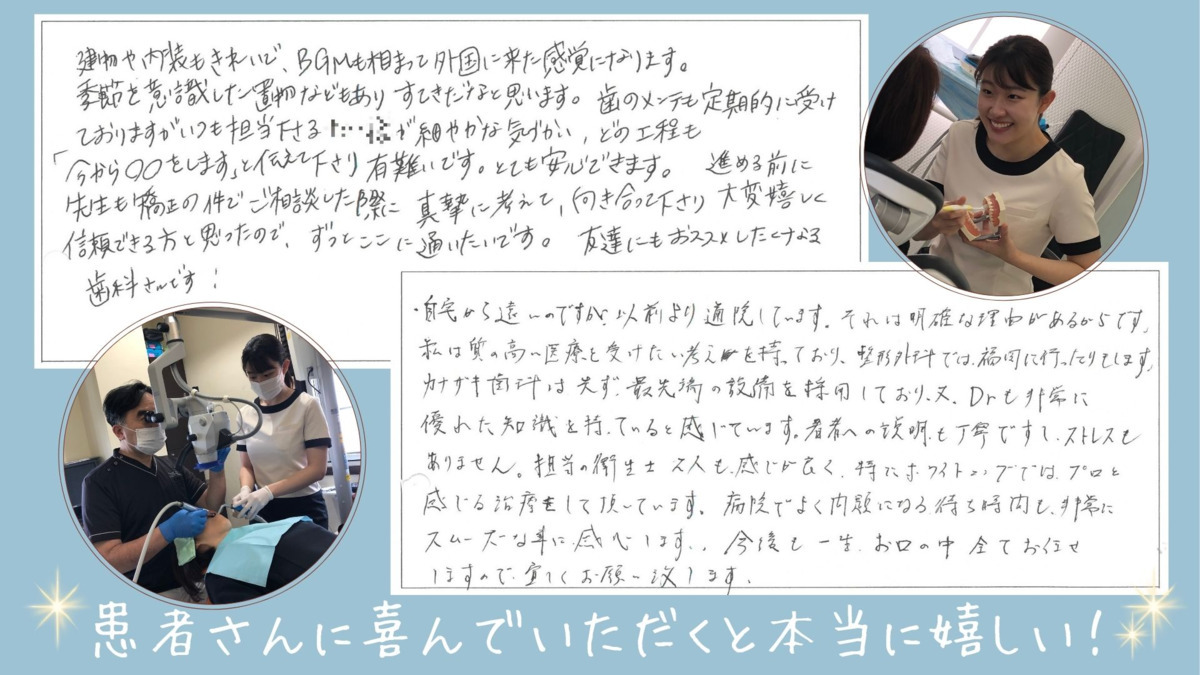 建物や内装もきれいで、BGMも相まって外国に来た感覚になります。
季節を意識した置物などもあり すてきだなと思います。歯のメンテも定期的に受け
ておりますがいつも担当下さる が細やかな気づかい、どの工程も
「今から〇〇をします」と伝えて下さり 有難いです。とても安心できます。 進める前に
先生も矯正の件でご相談した際に 真摯に考えて、向き合って下さり 大変嬉しく
信頼できる方と思ったので、ずっとここに通いたいです。 友達にもおススメしたくなる
歯科さんです!
・自宅から遠いのですが、以前より通院しています。それは明確な理由があるからです。
私は質の高い医療を受けたい考えを持っており、整形外科では、福岡に行ったりもします。
カナザキ歯科は先ず、最先端の設備を採用しており、又、Drも非常に
優れた知識を持っていると感じています。患者への説明も丁寧ですし、ストレスも
ありません。担当の衛生士 2人も、感じが良く、特にホワイトニングでは、プロと
感じる治療をして頂いています。病院でよく問題になる待ち時間も、非常に
スムーズな事に感心します。今後も一生、お口の中 全てお任せ
しますので、宜しくお願い致します。
患者さんに喜んでいただくと本当に嬉しい!